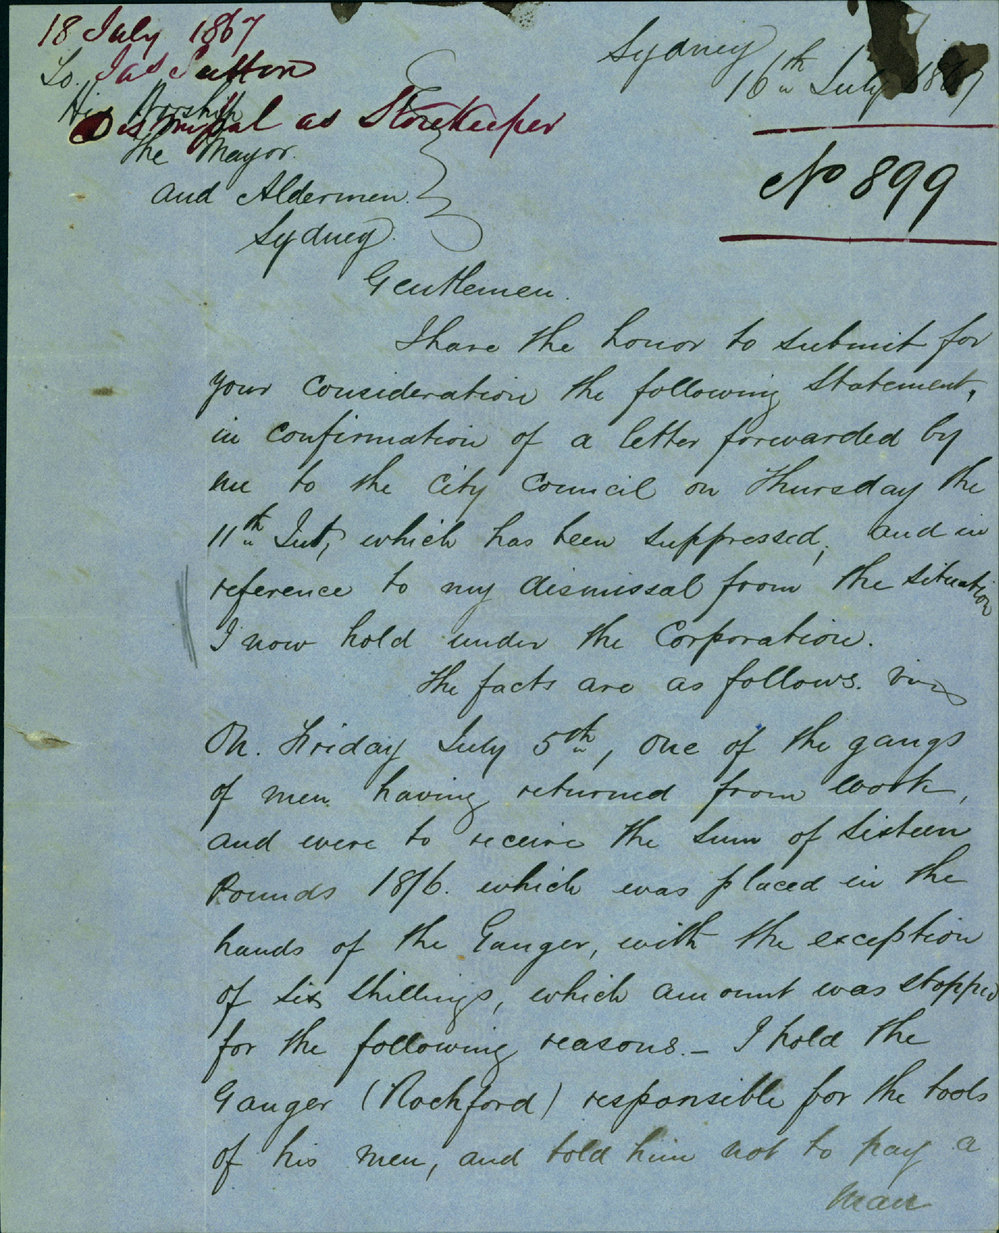 18 July 1867
Jas Sutton
Dismissal as Storekeeper
Sydney
16th July 1867
No 899
To.
His Worship
The Mayor.
and Aldermen.
Sydney.
Gentlemen.
I have the honor to submit for
your consideration the following Statement,
in confirmation of a letter forwarded by
me to the City Council on Thursday the
11th Inst, which has been suppressed, and in
reference to my dismissal from the situation
I now hold under the Corporation.
The facts are as follows. viz
On. Friday July 5th, one of the gangs
of men having returned from work,
and were to receive the sum of Sixteen
Pounds 18/6. which was placed in the
hands of the Ganger, with the exception
of six shillings, which amount was stopped
for the following reasons. — I hold the
Ganger (Rochford) responsible for the tools
of his men, and told him not to pay a
man